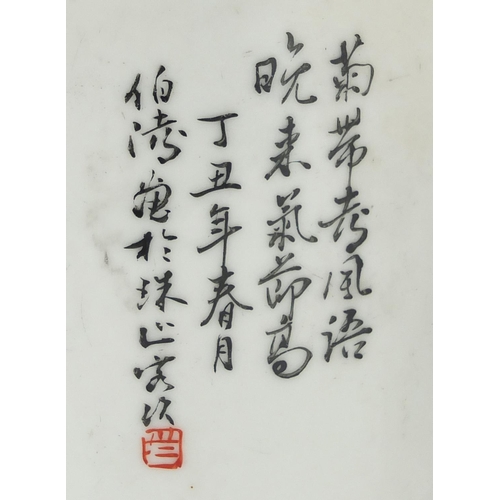 菊帶風語
晚來氣節高
丁丑年春月
伯濤畫於珠山客次